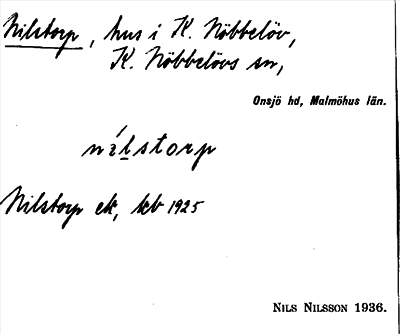 Nilstorp, hus i K. Nöbbelöv,
K. Nöbbelövs sn,
Onsjö hd, Malmöhus län.
nílstorp
Nilstorp ek, kb 1925
NILS NILSSON 1936.